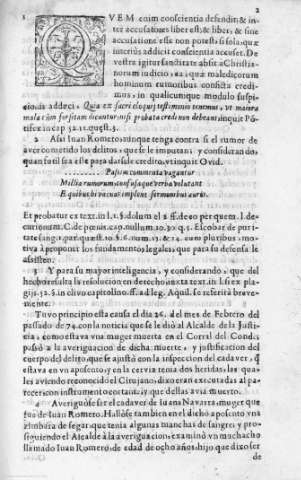 2
QVEM enim conscientia defendit; & in-
ter accusationes liber est; & liber, & sine
accusatione esse non potest si sola, quæ
interius addicit conscientia accuset. De
vestra igitur sanctitate absit
norum iudicio, ea, quæ maledicorum
hominum rumoribus conficta credi-
mus, in qualicumque modulo suspi-
cionis adduci. Quia ex sacri eloquij testimonio tenemus, ut maiora
mala cum forsitan dicuntur nisi probata credi non debeant inquit Pō
tifex in cap. 32. 11. quæst. 3.
2 Assi Iuan Romero, aunque tenga contra si el rumor de
aver cometido los delitos, que se le imputan; y considerando,
quan facil sea este para darsele credito, vt inquit Ovid.
Passim commenta vagantur
Millia rumorum, confusaque verba volutant
E quibus, hi vacuas implent sermonibus aures.
Et probatur ex text. in l. 1. §. dolum el 2. ff. de eo per quem. l. de-
curionum. C. de pœnis. cap. nullum 30. 2. q. 5. Escobar de puri-
tate sanguinis quæst. 10. §. 6. num. 1. & 2. cum pluribus, mo-
tiva à proponer los fundamentos legales, que para su defensa le
assisten.
3 Y para su mayor inteligencia, y considerando, que del
hecho resulta la resolucion en derecho in ex text. in l. si ex pla-
gijs. 52. §. in clivo capitolino. ff. ad leg. Aquil. se referirà breve-
mente.
Tuvo principio esta causa el dia 26. del mes de Febrero del
passado de 74. con la noticia que se le diò al Alcalde de la Justi-
cia, como estava vna muger muerta en el Corral del Conde,
passò à la averiguacion de dicha muerte, y justificacion del
cuerpo del delito, que se ajustò con la inspeccion del cadaver, q̃
estava en vn aposento, y en la cervix tenia dos heridas, las qua-
les aviendo reconocido el Cirujano, dixo eran executadas al pa-
recer, con instrumento cortante, y que dellas avia muerto.
4 Averiguòse ser el cadaver de Iuana Navarra, muger que
fue de Iuan Romero. Hallòse tambien en el dicho aposento vna
almibara de segar, que tenia algunas manchas de sangre, y pro-
siguiendo el Alcalde à la averiguacion, examinò vn muchacho
llamado Iuan Romero, de edad de ocho años, hijo que dixo ser
de